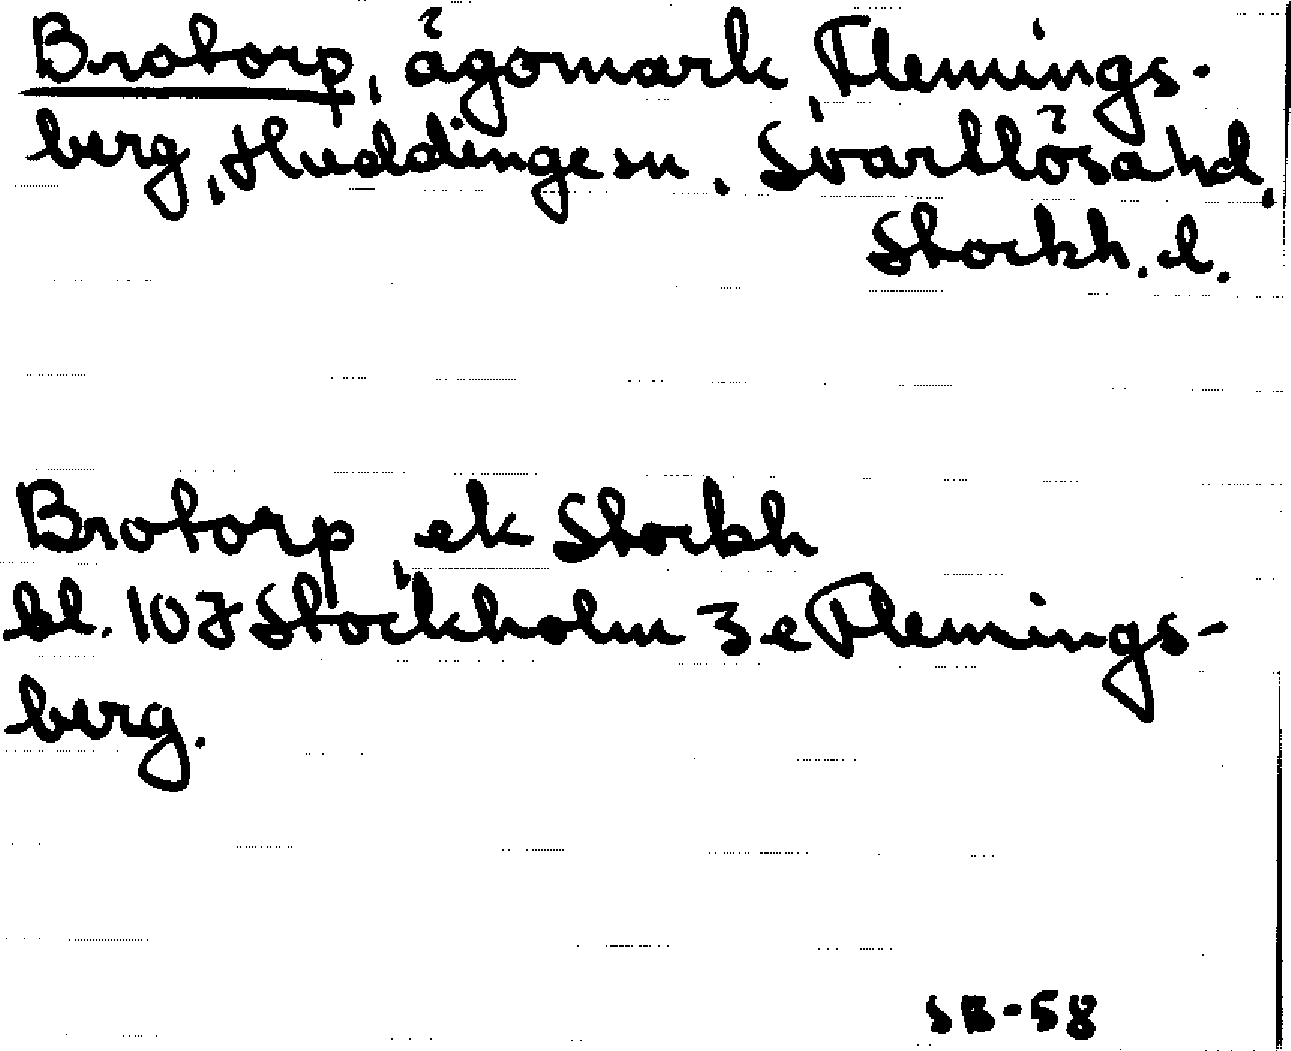 Brotorp, ägomark Flemings-
berg, Huddinge sn, Svartlösa hd,
Stockh. l.
Brotorp, ek Stockh
bl. 107 Stockholm 3 e Flemings-
berg.
SB-58